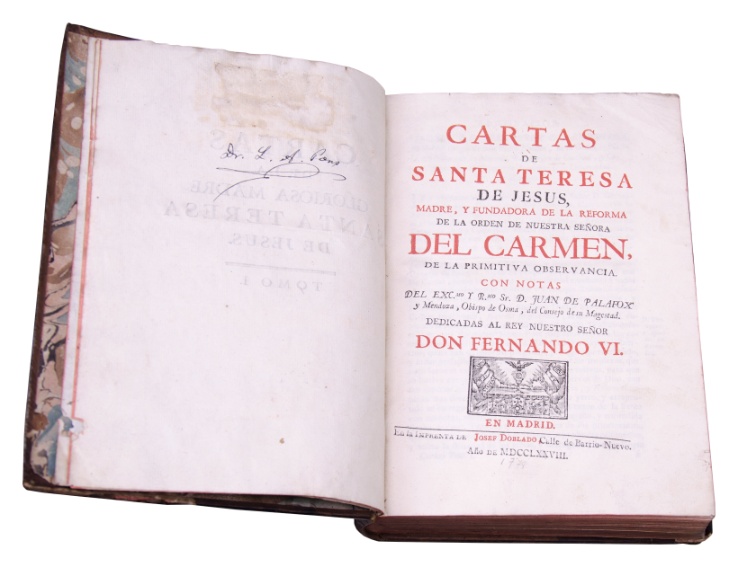 Dr. L. A. Pons
CARTAS
DE
SANTA TERESA
DE JESUS,
MADRE, Y FUNDADORA DE LA REFORMA
DE LA ORDEN DE NUESTRA SEÑORA
DEL CARMEN,
DE LA PRIMITIVA OBSERVANCIA.
CON NOTAS
DEL EXC.mo Y R.mo Sr. D. JUAN DE PALAFOX
y Mendoza, Obispo de Osma, del Consejo de su Magestad.
DEDICADAS AL REY NUESTRO SEÑOR
DON FERNANDO VI.
EN MADRID.
En la IMPRENTA DE JOSEF DOBLADO, Calle de Barrio-Nuevo.
Año DE MDCCLXXVIII.